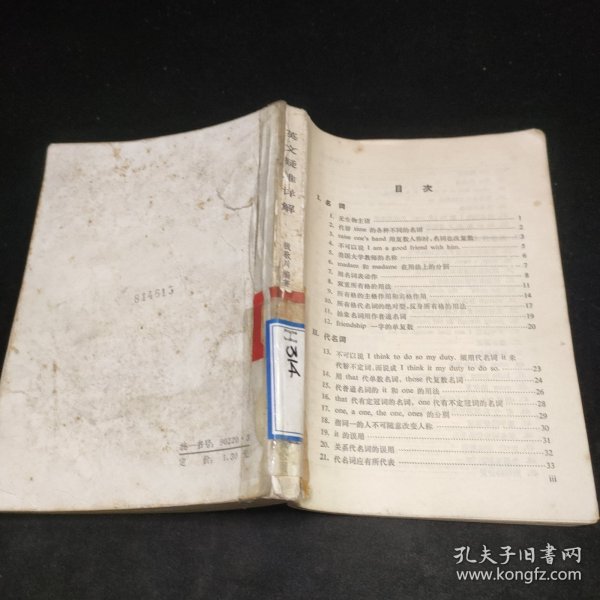 814615
统一书号：90220·3
定 价：1.30 元
英文疑难详解
钱歌川 编著
H
314
目 次
I. 名 词
1. 无生物主语 1
2. 代替 time 的各种不同的名词 2
3. raise one's hand 用复数人称时，名词也改复数 3
4. 不可以说 I am a good friend with him. 5
5. 美国大学教师的名称 5
6. madam 和 madame 在用法上的分别 6
7. 用名词表动作 7
8. 双重所有格的用法 8
9. 所有格的主格作用和宾格作用 14
10. 所有格代名词的绝对型，反身所有格的用法 17
11. 抽象名词用作普通名词 19
12. friendship 一字的单复数 20
II. 代名词
13. 不可以说 I think to do so my duty. 须用代名词 it 来
代替不定词，而说成 I think it my duty to do so. 23
14. 用 that 代单数名词，those 代复数名词 24
15. 代普通名词的 it 和 one 的用法 26
16. that 代有定冠词的名词，one 代有不定冠词的名词 28
17. one, a one, the one, ones 的分别 29
18. 指同一的人不可随意改变人称 30
19. it 的误用 31
20. 关系代名词的误用 32
21. 代名词应有所代表 33
iii
孔夫子旧书网
www.kongfz.com